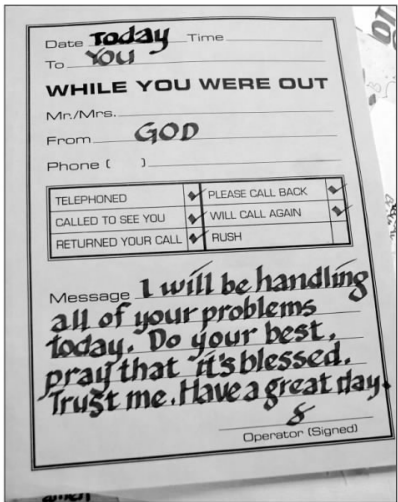 Date Today Time
To You
WHILE YOU WERE OUT
Mr./Mrs.
From GOD
Phone ( )
TELEPHONED ✔ PLEASE CALL BACK ✔
CALLED TO SEE YOU ✔ WILL CALL AGAIN ✔
RETURNED YOUR CALL ✔ RUSH
Message I will be handling
all of your problems
today. Do your best,
pray that it's blessed.
Trust me. Have a great day.
Operator (Signed)